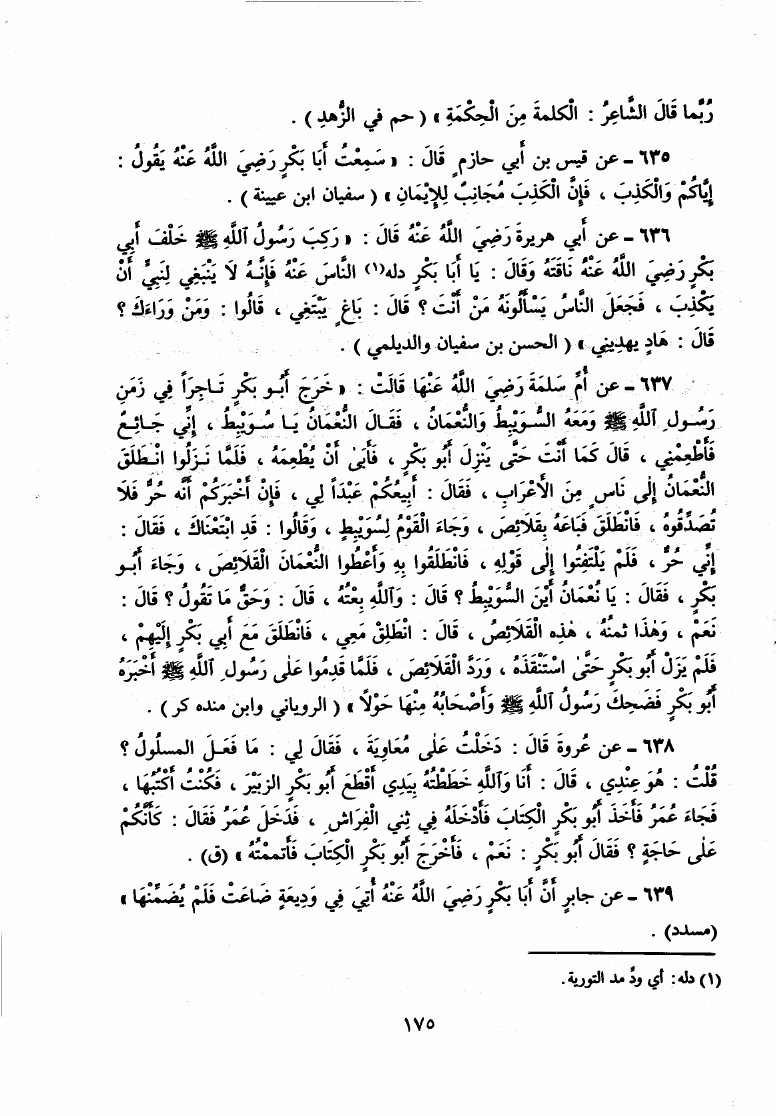 رُبَّما قَالَ الشَّاعِرُ : الْكلمةَ مِنَ الْحِكْمَةِ » ( حم في الزُّهدِ ) .
٦٣٥ ـ عن قيس بن أبي حازمٍ قَالَ : « سَمِعْتُ أَبَا بَكْرٍ رَضِيَ اللَّهُ عَنْهُ يَقُولُ :
إِيَّاكُمْ وَالْكَذِبَ ، فَإِنَّ الْكَذِبَ مُجَانِبٌ لِلإِيْمَانِ » ( سفيان ابن عيينة ) .
٦٣٦ ـ عن أبي هريرةَ رَضِيَ اللَّهُ عَنْهُ قَالَ : « رَكِبَ رَسُولُ اللَّهِ ﷺ خَلْفَ أَبِي
بَكْرٍ رَضِيَ اللَّهُ عَنْهُ نَاقَتَهُ وَقَالَ : يَا أَبَا بَكْرٍ دله(١) النَّاسَ عَنْهُ فَإِنَّهُ لَا يَنْبَغِي لِنَبِيٍّ أَنْ
يَكْذِبَ ، فَجَعَلَ النَّاسُ يَسْأَلُونَهُ مَنْ أَنْتَ ؟ قَالَ : بَاغٍ يَبْتَغِي ، قَالُوا : وَمَنْ وَرَاءَكَ ؟
قَالَ : هَادٍ يهديني » ( الحسن بن سفيان والديلمي ) .
٦٣٧ ـ عن أُمِّ سَلَمَةَ رَضِيَ اللَّهُ عَنْهَا قَالَتْ : « خَرَجَ أَبُو بَكْرٍ تَاجِرَاً فِي زَمَنِ
رَسُولِ اللَّهِ ﷺ وَمَعَهُ السُّوَيْبِطُ وَالنُّعْمَانُ ، فَقَالَ النُّعْمَانُ يَا سُوَيْبِطُ ، إِنِّي جَائِعٌ
فَأَطْعِمْنِي ، قَالَ كَمَا أَنْتَ حَتَّى يَنْزِلَ أَبُو بَكْرٍ ، فَأَبَىٰ أَنْ يُطْعِمَهُ ، فَلَمَّا نَزَلُوا انْطَلَقَ
النُّعْمَانُ إِلَى نَاسٍ مِنَ الأَعْرَابِ ، فَقَالَ : أَبِيعُكُمْ عَبْدَاً لِي ، فَإِنْ أَخْبَرَكُمْ أَنَّه حُرٌّ فَلَا
تُصَدِّقُوهُ ، فَانْطَلَقَ فَبَاعَهُ بِقَلَائِصَ ، وَجَاءَ الْقَوْمُ لِسُوَيْبِطٍ ، وَقَالُوا : قَدِ ابْتَعْنَاكَ ، فَقَالَ :
إِنِّي حُرٌّ ، فَلَمْ يَلْتَفِتُوا إِلَى قَوْلِهِ ، فَانْطَلَقُوا بِهِ وَأَعْطُوا النُّعْمَانَ الْقَلَائِصَ ، وَجَاءَ أَبُو
بَكْرٍ ، فَقَالَ : يَا نُعْمَانُ أَيْنَ السُّوَيْبِطُ ؟ قَالَ : وَاللَّهِ بِعْتُهُ ، قَالَ : وَحَقٌّ مَا تَقُولُ ؟ قَالَ :
نَعَمْ ، وَهٰذَا ثمنُهُ ، هٰذِه الْقَلَائِصُ ، قَالَ : انْطَلِقْ مَعِي ، فَانْطَلَقَ مَعَ أَبِي بَكْرٍ إِلَيْهِمْ ،
فَلَمْ يَزَلْ أَبُو بَكْرٍ حَتَّى اسْتَنْقَذَهُ ، وَرَدَّ الْقَلَائِصَ ، فَلَمَّا قَدِمُوا عَلَى رَسُولِ اللَّهِ ﷺ أَخْبَرَهُ
أَبُو بَكْرٍ فَضَحِكَ رَسُولُ اللَّهِ ﷺ وَأَصْحَابُهُ مِنْهَا حَوْلاً » ( الروياني وابن منده كر ) .
٦٣٨ ـ عن عُروةَ قَالَ : دَخَلْتُ عَلَى مُعَاوِيَةَ ، فَقَالَ لِي : مَا فَعَلَ المسلُولُ ؟
قُلْتُ : هُوَ عِنْدِي ، قَالَ : أَنَا وَاللَّهِ خَطَطْتُهُ بِيَدِي أَقْطَعَ أَبُو بَكْرٍ الزبَيْرَ ، فَكُنْتُ أَكْتُبُهَا ،
فَجَاءَ عُمَرُ فَأَخَذَ أَبُو بَكْرٍ الْكِتَابَ فَأَدْخَلَهُ فِي ثِنِي الْفِرَاشِ ، فَدَخَلَ عُمَرُ فَقَالَ : كَأَنَّكُمْ
عَلَى حَاجَةٍ ؟ فَقَالَ أَبُو بَكْرٍ : نَعَمْ ، فَأَخْرَجَ أَبُو بَكْرٍ الْكِتَابَ فَأَتممْتُهُ » (ق) .
٦٣٩ ـ عن جابرٍ أَنَّ أَبَا بَكْرٍ رَضِيَ اللَّهُ عَنْهُ أُتِيَ فِي وَدِيعَةٍ ضَاعَتْ فَلَمْ يُضَمِّنْهَا »
(مسدد) .
(١) دله: أي ودِّ مد التورية.
١٧٥